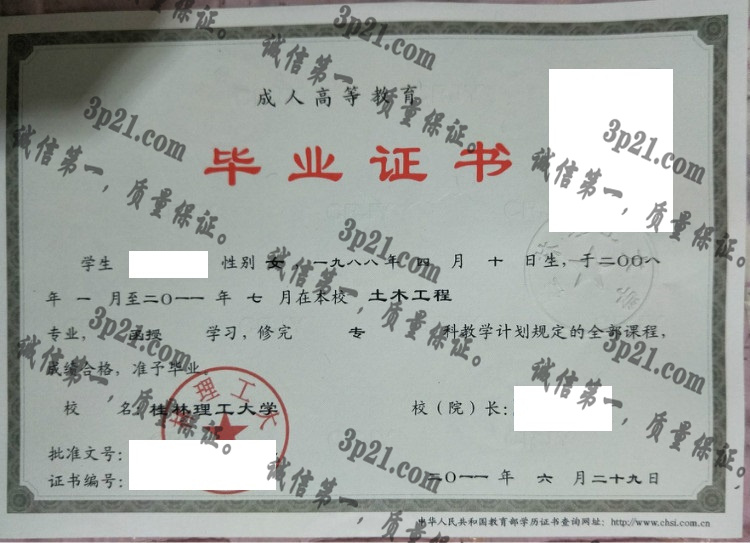 成人高等教育
毕业证书
学生 性别 女，一九八八年 四 月 十 日生，于二〇〇八
年 一 月至二〇一一 年 七 月在本校 土木工程
专业， 函授 学习，修完 专 科教学计划规定的全部课程，
成绩合格，准予毕业。
校 名：桂林理工大学 校（院）长：
理工大
批准文号：
证书编号： 二〇一一 年 六 月二十九日
中华人民共和国教育部学历证书查询网址：http://www.chsi.com.cn
3p21.com
诚信第一，质量保证。
3p21.com
诚信第一，质量保证。
3p21.com
诚信第一，质量保证。
3p21.com
诚信第一，质量保证。
3p21.com
诚信第一，质量保证。
3p21.com
诚信第一，质量保证。
3p21.com
诚信第一，质量保证。
质量保证。